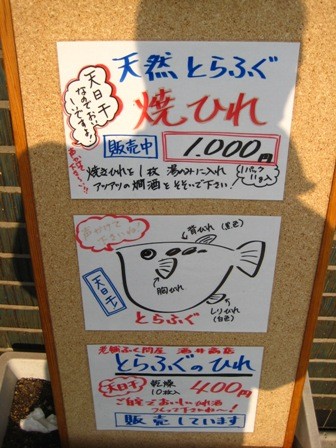 天然 とらふぐ
天日干
なのでおいし
いですよ!
焼ひれ
販売中
1,000円
焼きひれを1枚 湯のみに入れ
アツアツの燗酒をそそいで下さい
1パック
11g入
声かけて
下さいね
背びれ(黒色)
天日干し
胸びれ
しりびれ
(白色)
とらふぐ
老舗ふぐ問屋 酒井商店
とらふぐのひれ
天日干し
乾燥
10枚入
400円
ご自宅でおいしいひれ酒
つくって
販売しています